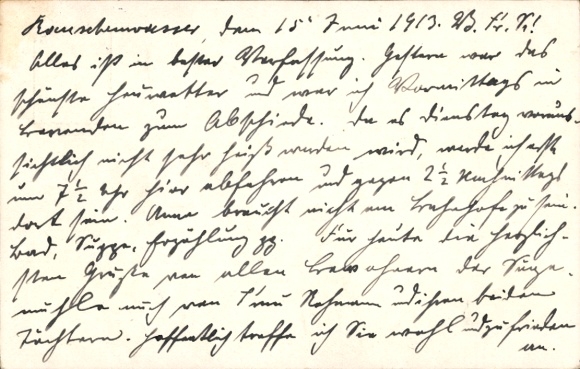 Rauschenwasser, den 15. Juni 1913. B. Fr. K!
Alles ist in bester Verfassung. Gestern war das
schönste Heuwetter und war ich Vormittags in
Bovenden zum Abschiede. Da es Dienstag voraus-
sichtlich nicht sehr heiß werden wird, werde ich erst
um 7 1/2 Uhr hier abfahren und gegen 2 1/2 Nachmittags
dort sein. Anna braucht nicht am Bahnhofe zu sein.
Bad, Suppe, Erzählung pp. Für heute die herzlich-
sten Grüße von allen Bewohnern der
mühle auch von Frau und ihren beiden
Töchtern. Hoffentlich treffe ich Sie wohl und zufrieden
an.